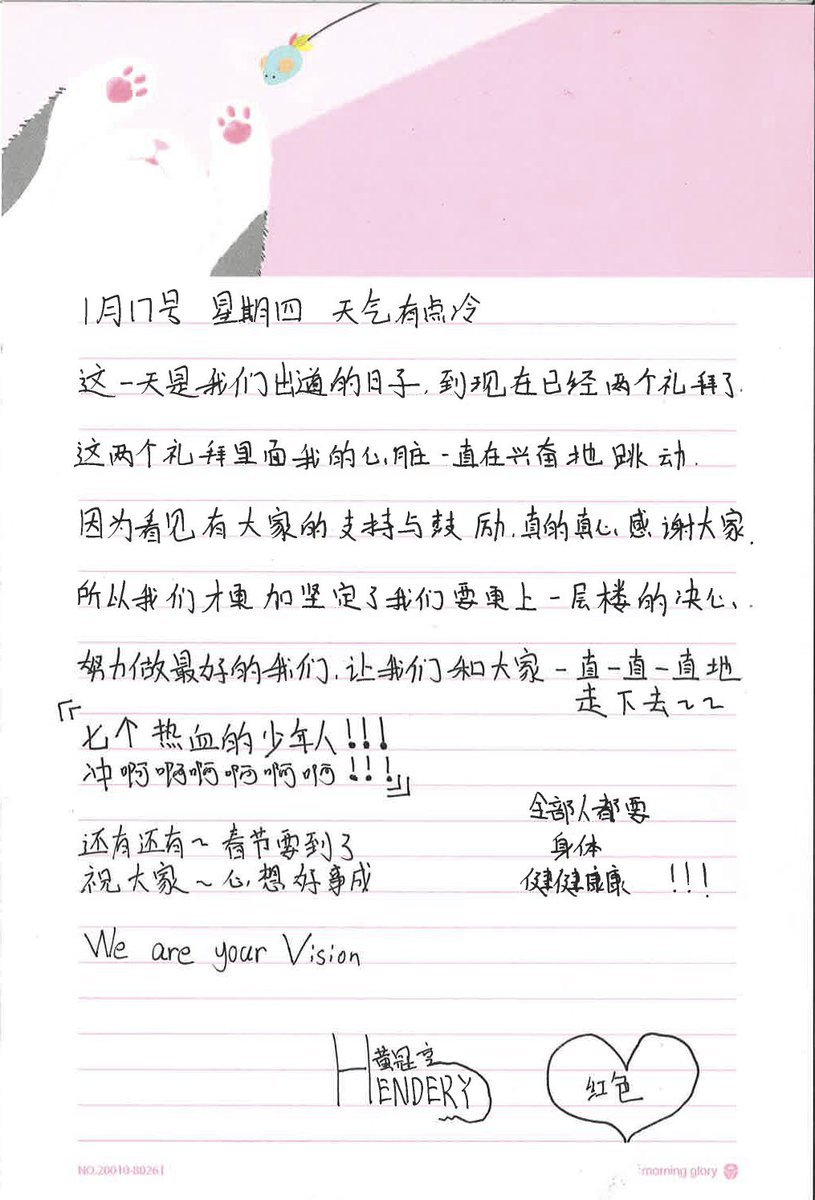 1月17号 星期四 天气有点冷
这一天是我们出道的日子,到现在已经两个礼拜了.
这两个礼拜里面我的心脏一直在兴奋地跳动.
因为看见有大家的支持与鼓励,真的真心感谢大家.
所以我们才更加坚定了我们要更上一层楼的决心、
努力做最好的我们,让我们和大家一直一直一直地
走下去~~
『七个热血的少年人!!!
冲啊啊啊啊啊啊!!!』
全部人都要
身体
健健康康 !!!
还有还有~春节要到了
祝大家~心想好事成
We are your Vision
黄冠亨
HENDERY
红色
NO.20010-80261
morning glory